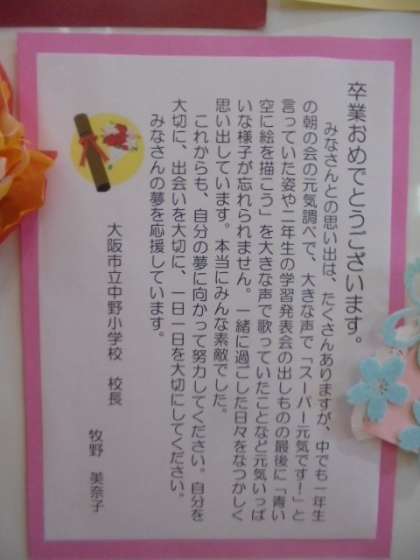 卒業おめでとうございます。
みなさんとの思い出は、たくさんありますが、中でも一年生
の朝の会の元気調べで、大きな声で「スーパー元気です!」と
言っていた姿や二年生の学習発表会の出しものの最後に「青い
空に絵を描こう」を大きな声で歌っていたことなど元気いっぱ
いな様子が忘れられません。一緒に過ごした日々をなつかしく
思い出しています。本当にみんな素敵でした。
これからも、自分の夢に向かって努力してください。自分を
大切に、出会いを大切に、一日一日を大切にしてください。
みなさんの夢を応援しています。
大阪市立中野小学校 校長
牧野 美奈子